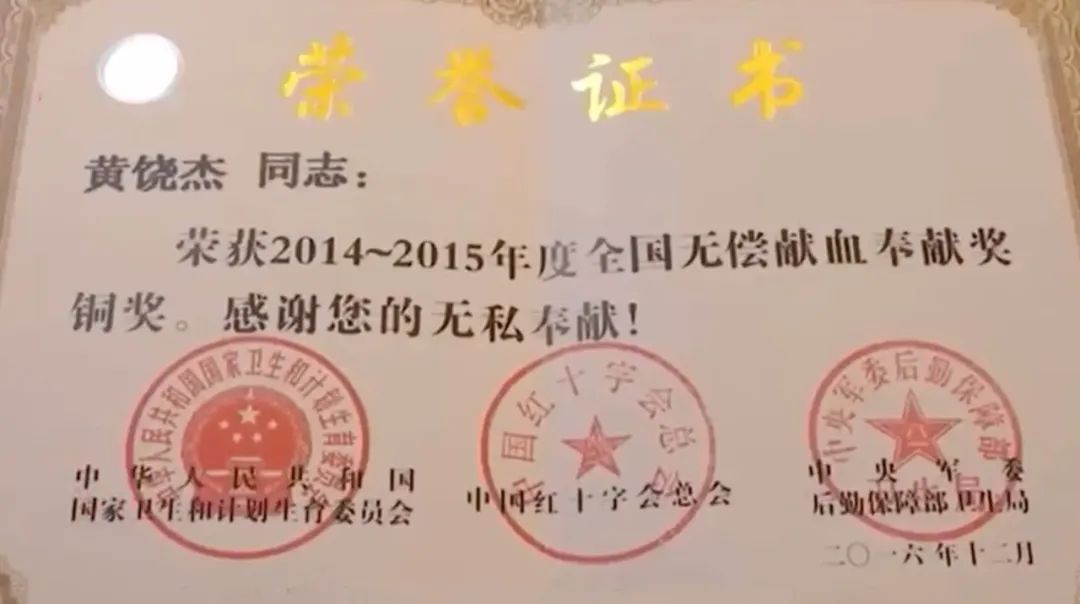 荣誉证书
黄饶杰 同志：
荣获2014~2015年度全国无偿献血奉献奖
铜奖。感谢您的无私奉献！
中华人民共和国国家卫生和计划生育委员会
中国红十字会总会
中央军委后勤保障部
卫生局
中华人民共和国
国家卫生和计划生育委员会
中国红十字会总会
中央军委
后勤保障部卫生局
二〇一六年十二月